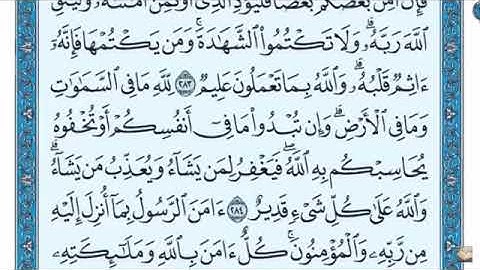 فَإِنْ أَمِنَ بَعْضُكُم بَعْضًا فَلْيُؤَدِّ ٱلَّذِى ٱؤْتُمِنَ أَمَٰنَتَهُۥ وَلْيَتَّقِ
ٱللَّهَ رَبَّهُۥ ۗ وَلَا تَكْتُمُوا۟ ٱلشَّهَٰدَةَ ۚ وَمَن يَكْتُمْهَا فَإِنَّهُۥٓ
ءَاثِمٌ قَلْبُهُۥ ۗ وَٱللَّهُ بِمَا تَعْمَلُونَ عَلِيمٌ ٢٨٣ لِّلَّهِ مَا فِى ٱلسَّمَٰوَٰتِ
وَمَا فِى ٱلْأَرْضِ ۗ وَإِن تُبْدُوا۟ مَا فِىٓ أَنفُسِكُمْ أَوْ تُخْفُوهُ
يُحَاسِبْكُم بِهِ ٱللَّهُ ۖ فَيَغْفِرُ لِمَن يَشَآءُ وَيُعَذِّبُ مَن يَشَآءُ ۗ
وَٱللَّهُ عَلَىٰ كُلِّ شَىْءٍ قَدِيرٌ ٢٨٤ ءَامَنَ ٱلرَّسُولُ بِمَآ أُنزِلَ إِلَيْهِ
مِن رَّبِّهِۦ وَٱلْمُؤْمِنُونَ ۚ كُلٌّ ءَامَنَ بِٱللَّهِ وَمَلَٰٓئِكَتِهِۦ